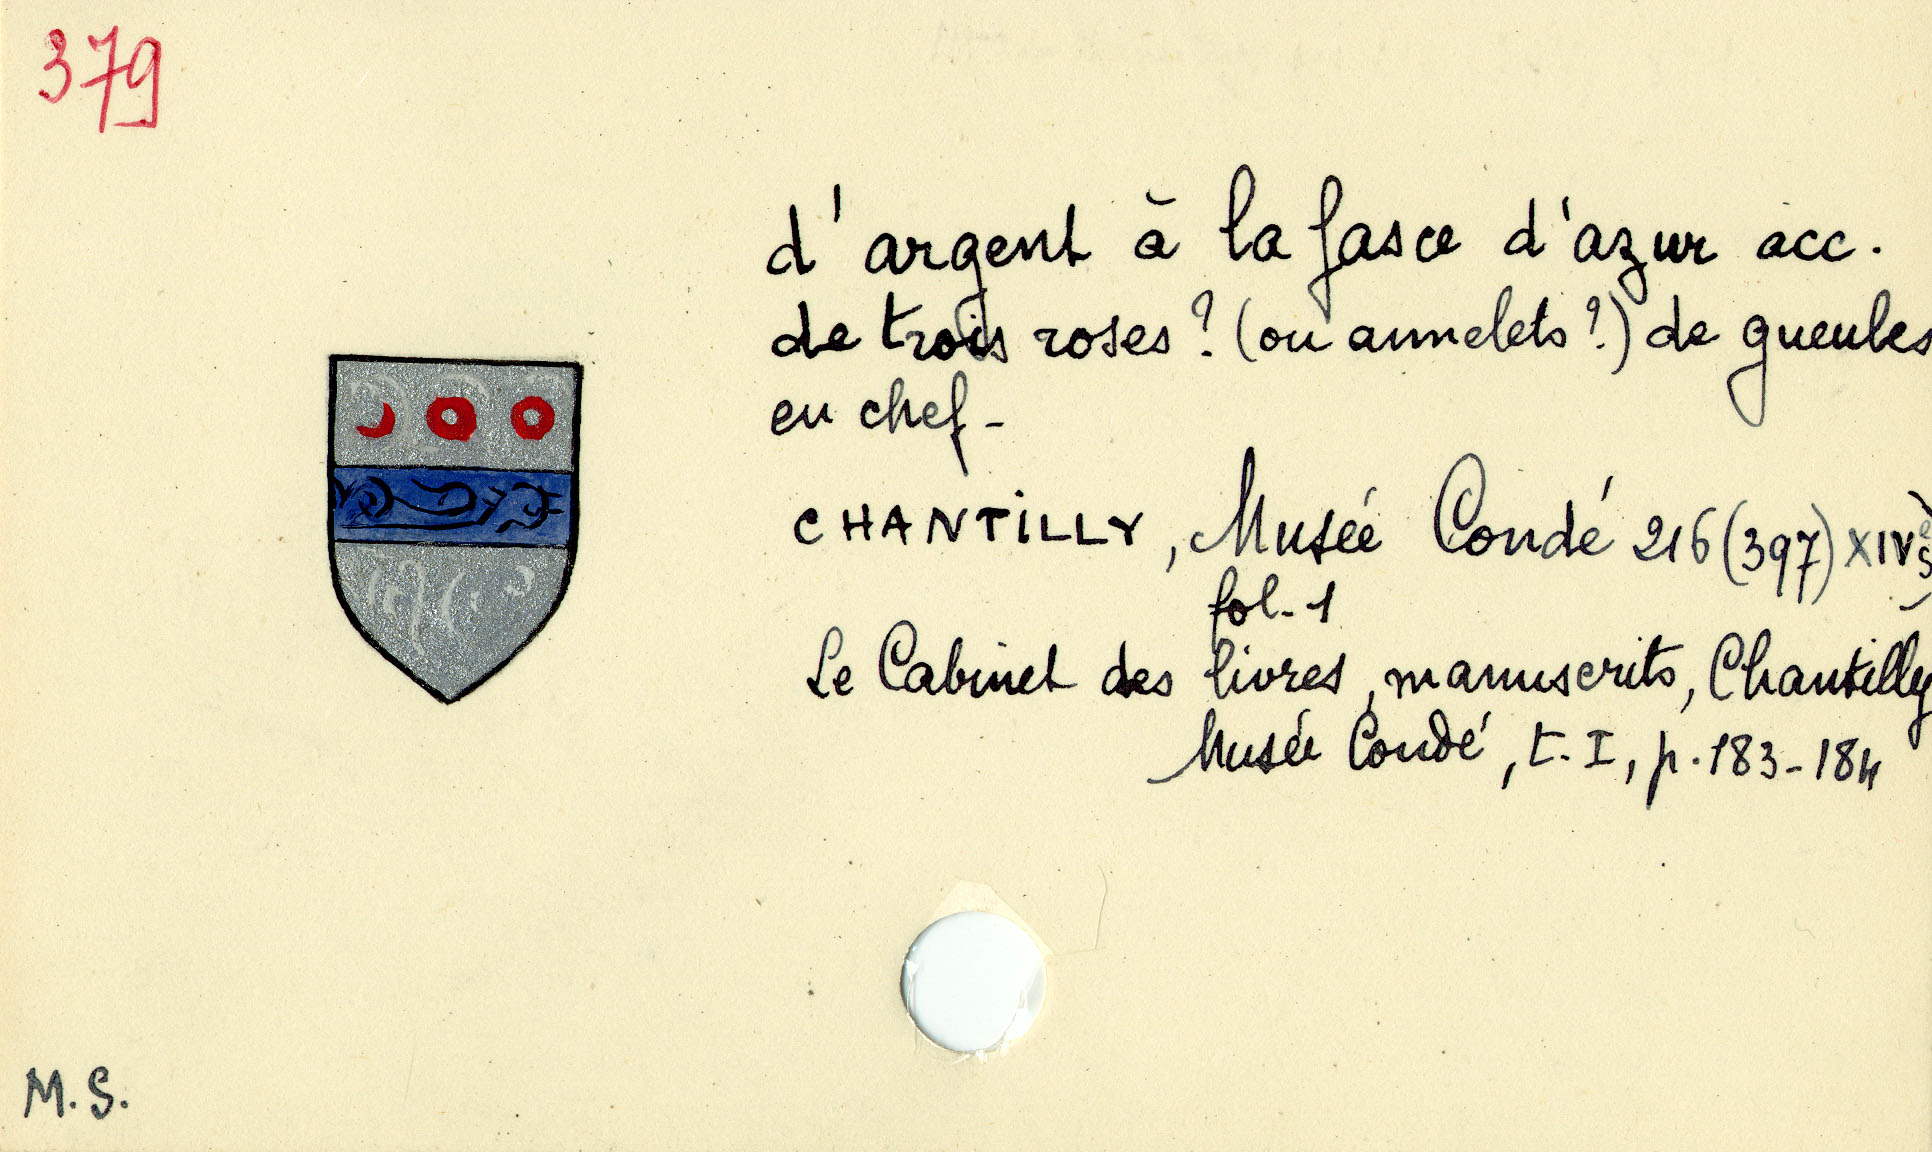 379
d'argent à la fasce d'azur acc.
de trois roses? (ou annelets?) de gueules
en chef -
CHANTILLY, Musée Condé 216 (397) XIVe s
fol. 1
Le Cabinet des livres, manuscrits, Chantilly
Musée Condé, t. I, p. 183-184
M.S.